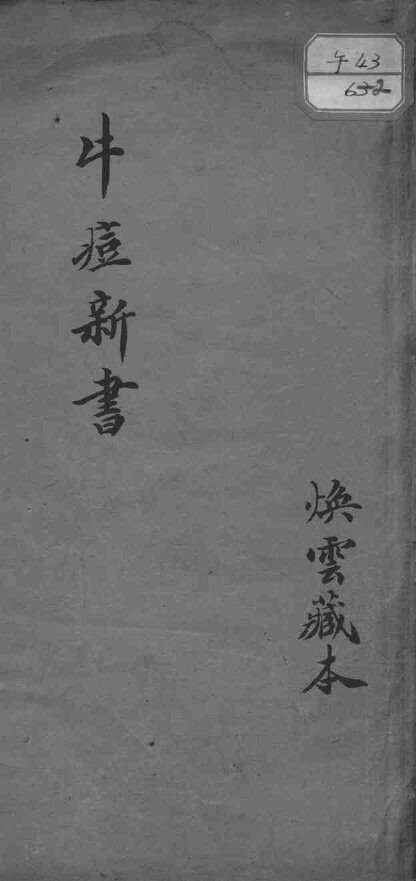 午43
632
牛痘新書
煥雲藏本